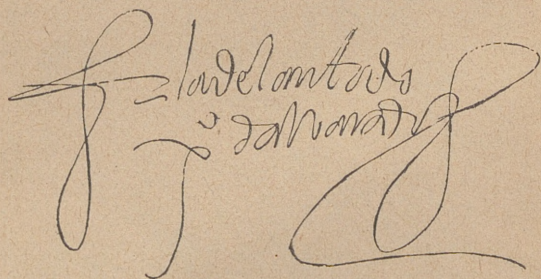 El adelantado
pº dalvarado